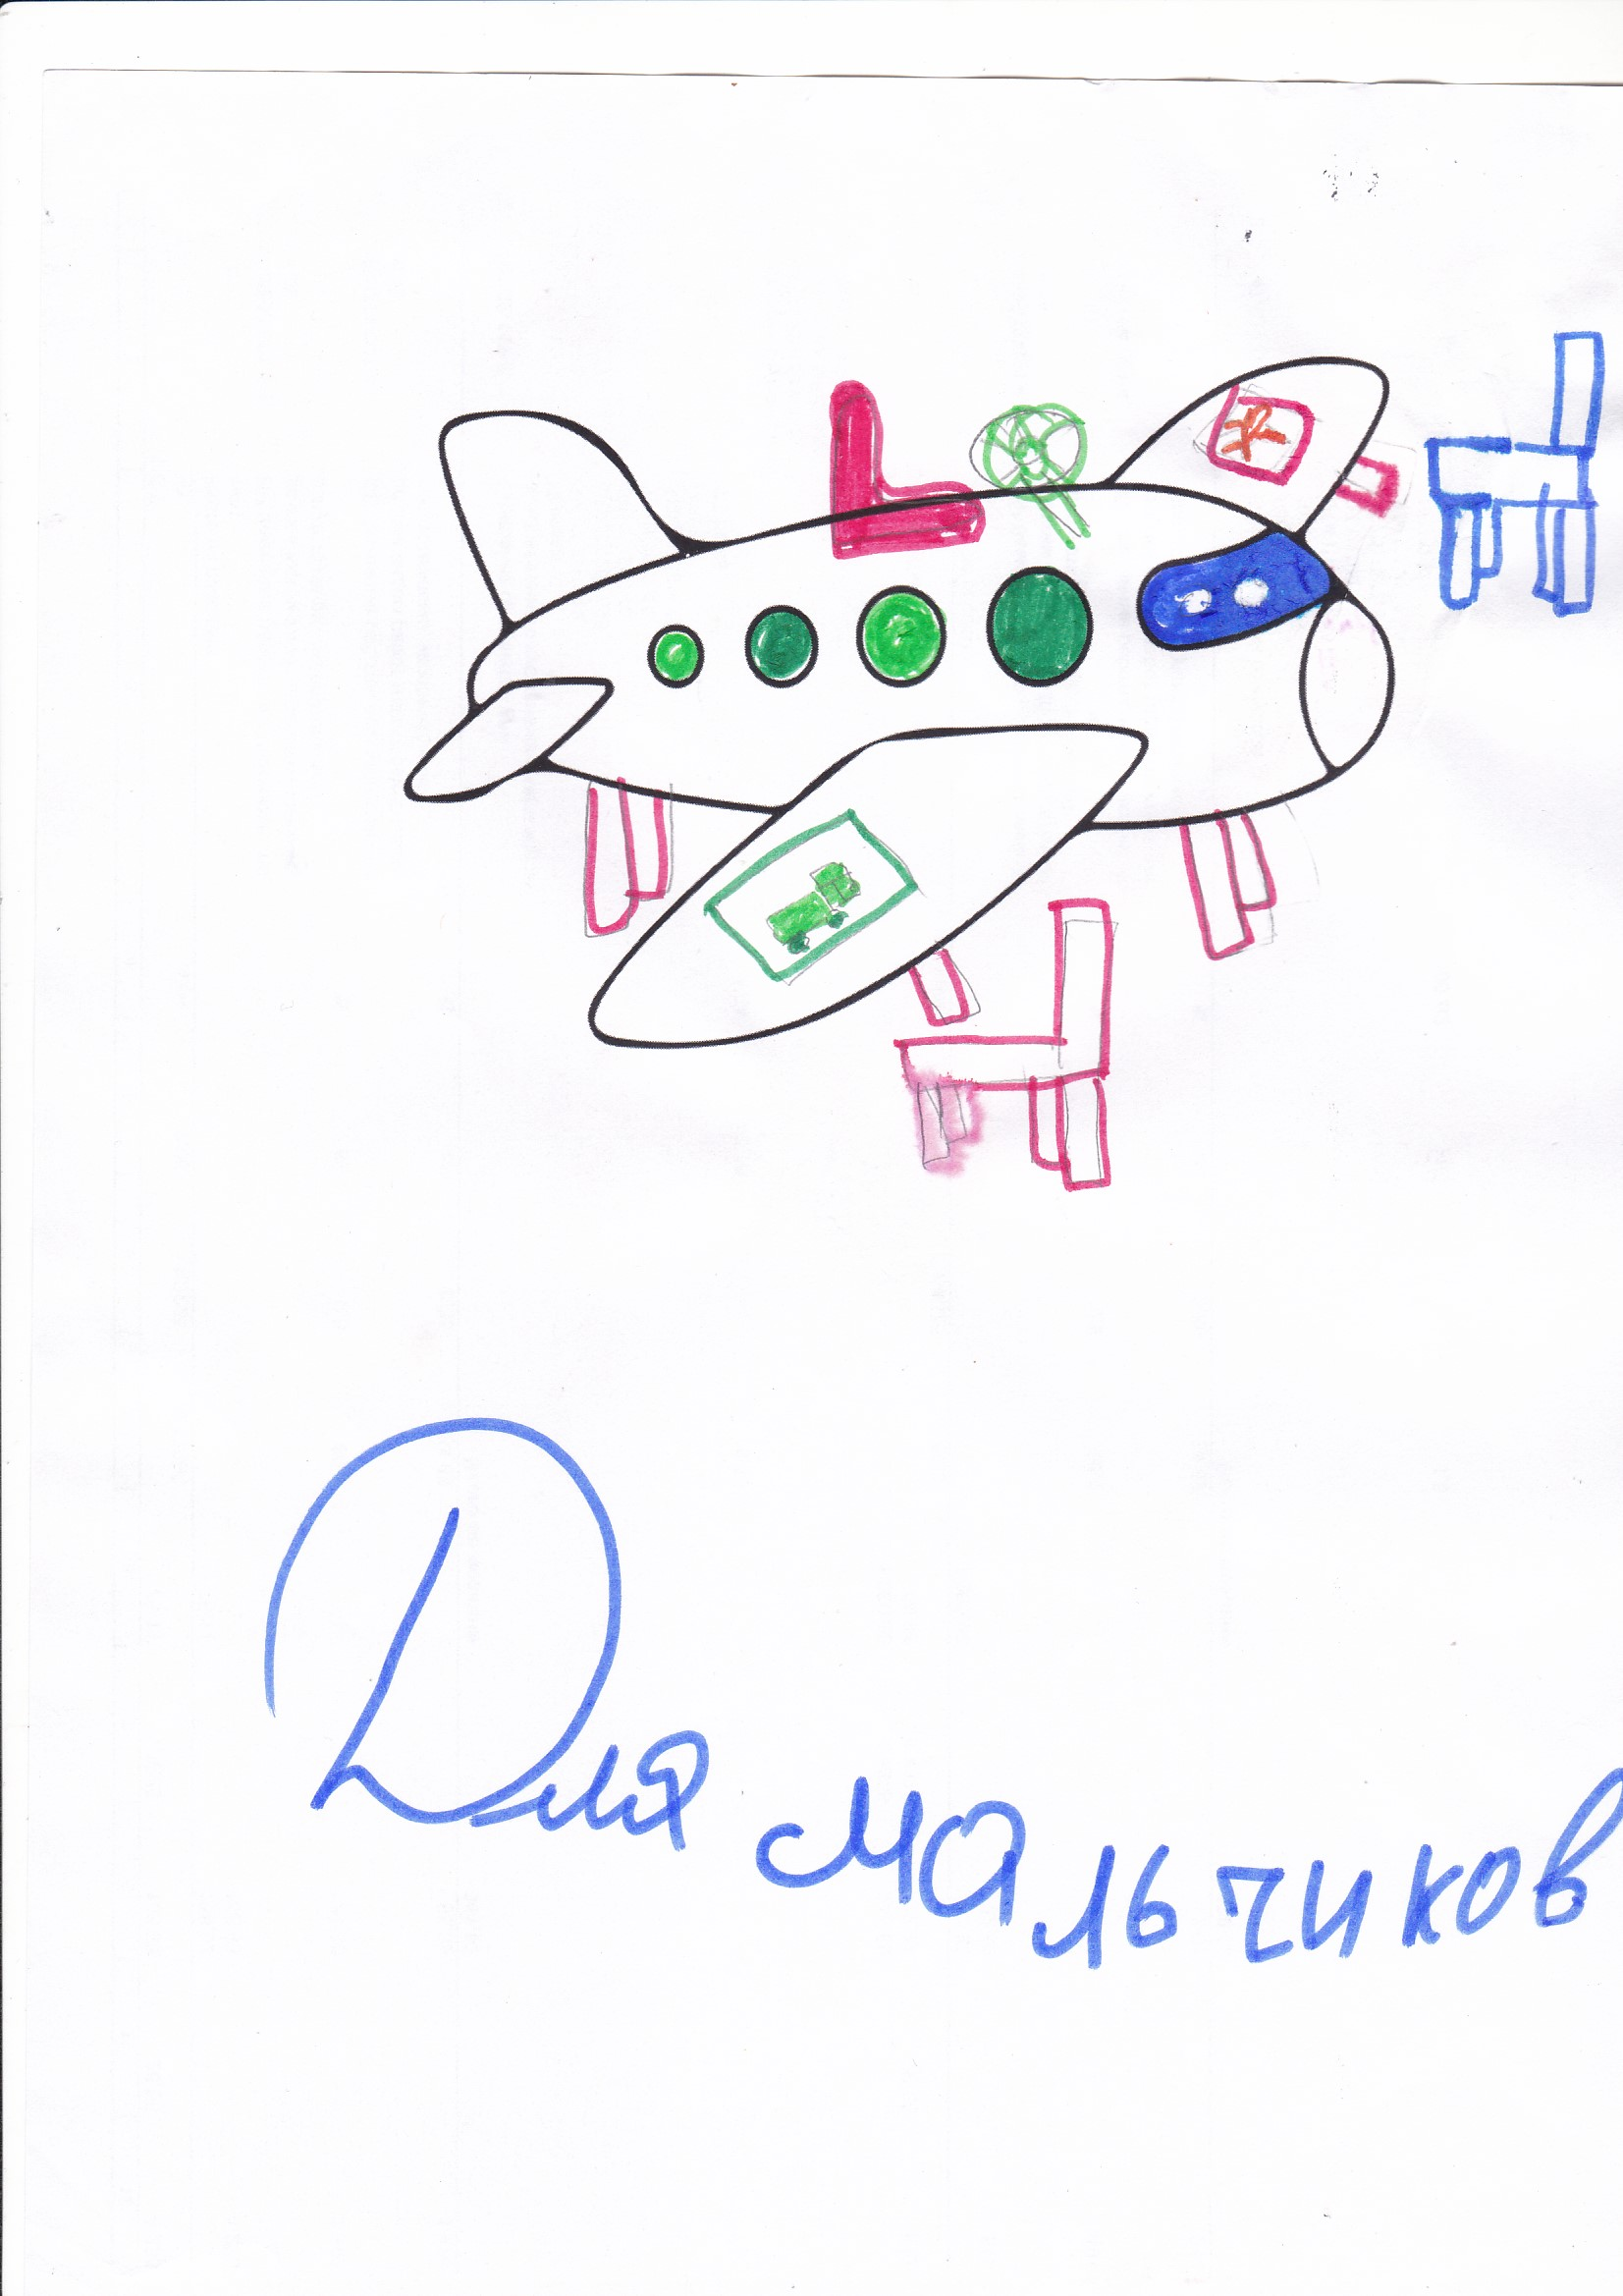 Для мальчиков